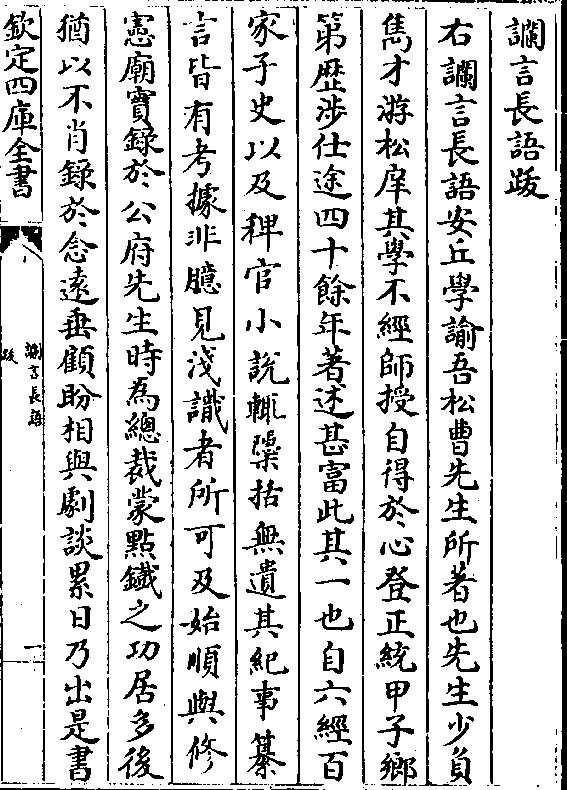 讕言長語跋
右讕言長語安丘學諭吾松曹先生所著也先生少負
雋才游松庠其學不經師授自得於心登正統甲子鄉
第歴涉仕途四十餘年著述甚富此其一也自六經百
家子史以及稗官小說輒檃括無遺其紀事纂
言皆有考據非臆見淺識者所可及始順與修
憲廟實錄於公府先生時為總裁蒙點鐵之功居多後
猶以不肖錄於念遠垂顧盼相與劇談累日乃出是書
欽定四庫全書
讕言長語
跋
一